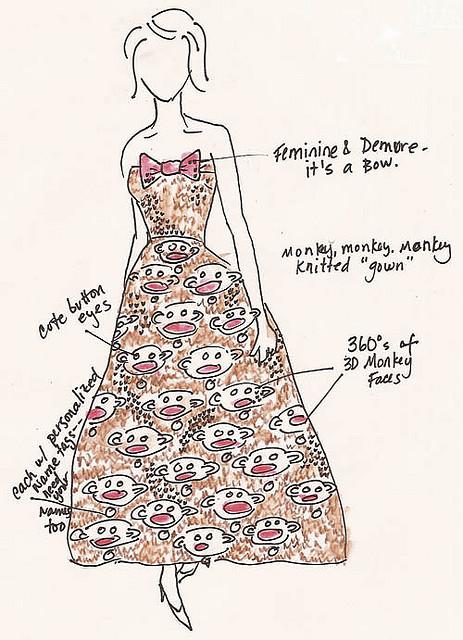 Feminine & Demure -
it's a Bow.
Monkey, monkey, Monkey
Knitted "gown"
cute button
eyes
360°s of
3D Monkey
Faces
each w/ personalized
name tags --
need your
names
too